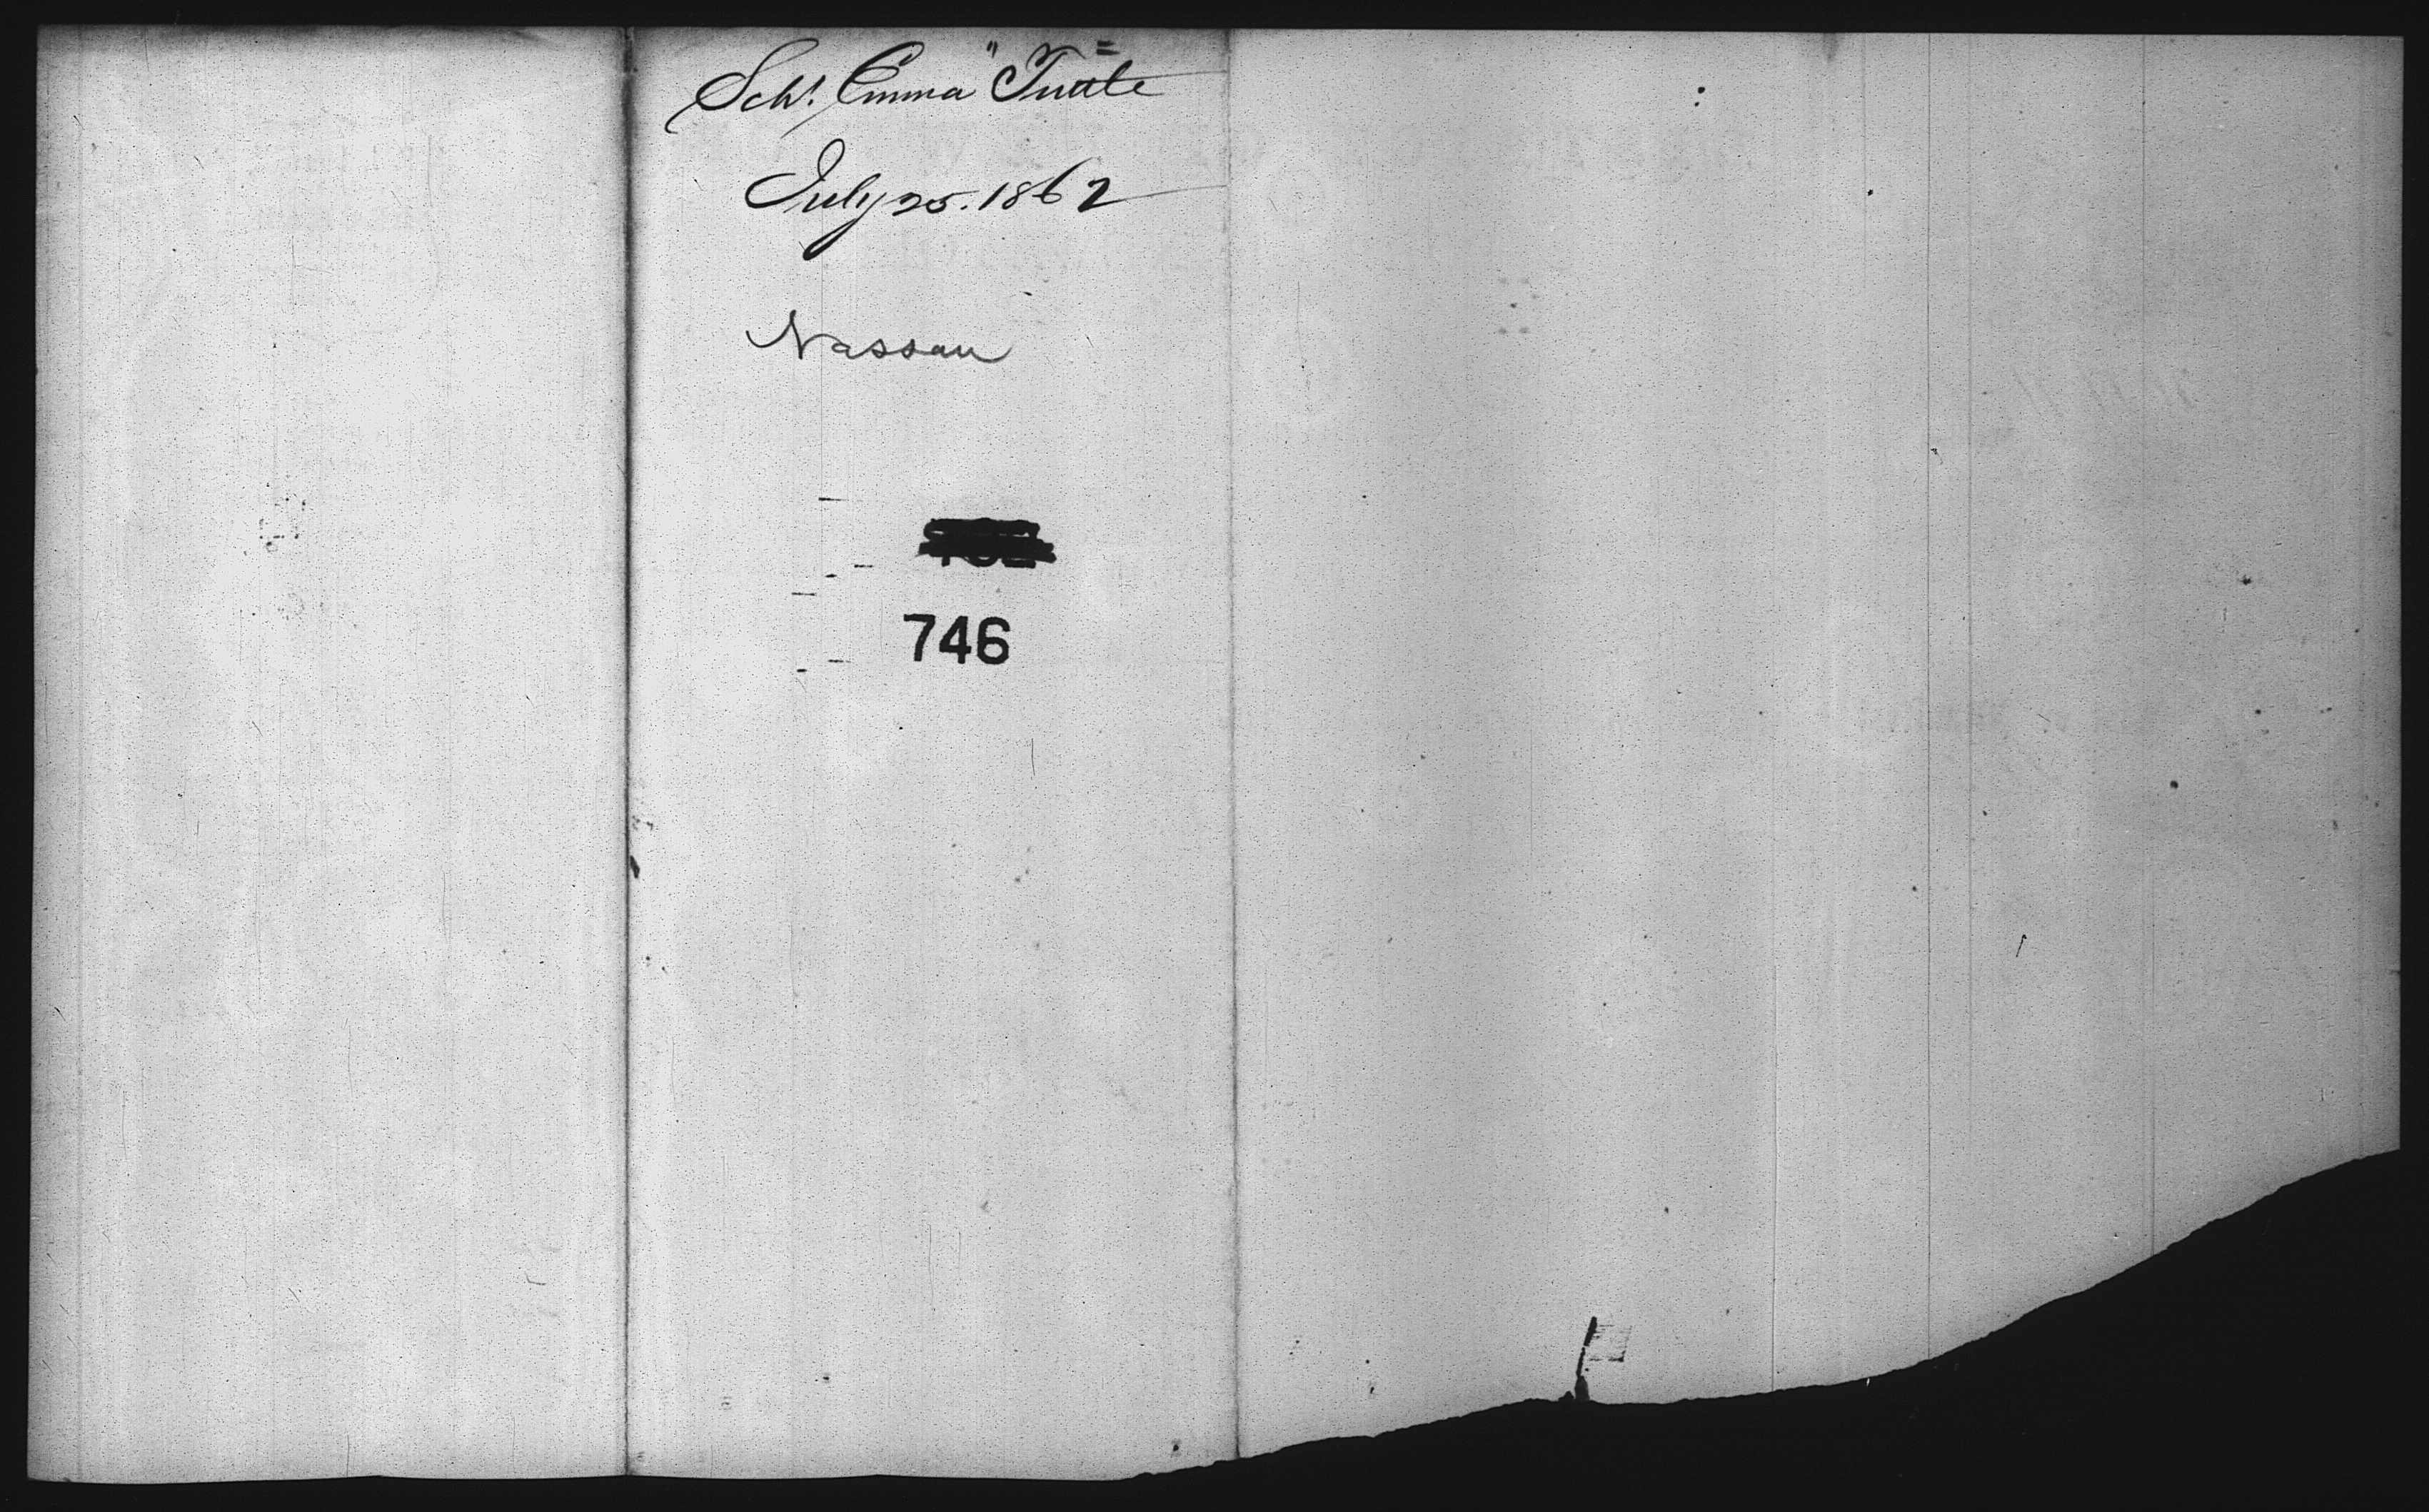 Schr. Emma "Tuttle"
July 25. 1862
Nassau
746